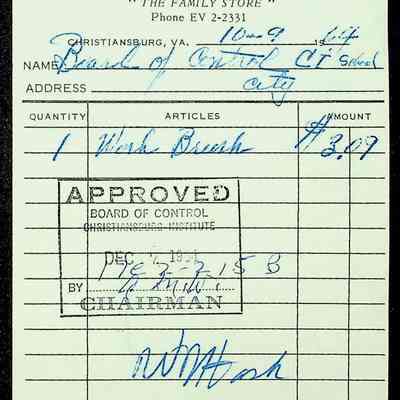 " THE FAMILY STORE "
Phone EV 2-2331
CHRISTIANSBURG, VA. 10-9 1964
NAME Board of Control CI School
ADDRESS City
QUANTITY ARTICLES AMOUNT
1 Wash Brush $3.09
APPROVED
BOARD OF CONTROL
CHRISTIANSBURG INSTITUTE
DEC 7
BY
CHAIRMAN